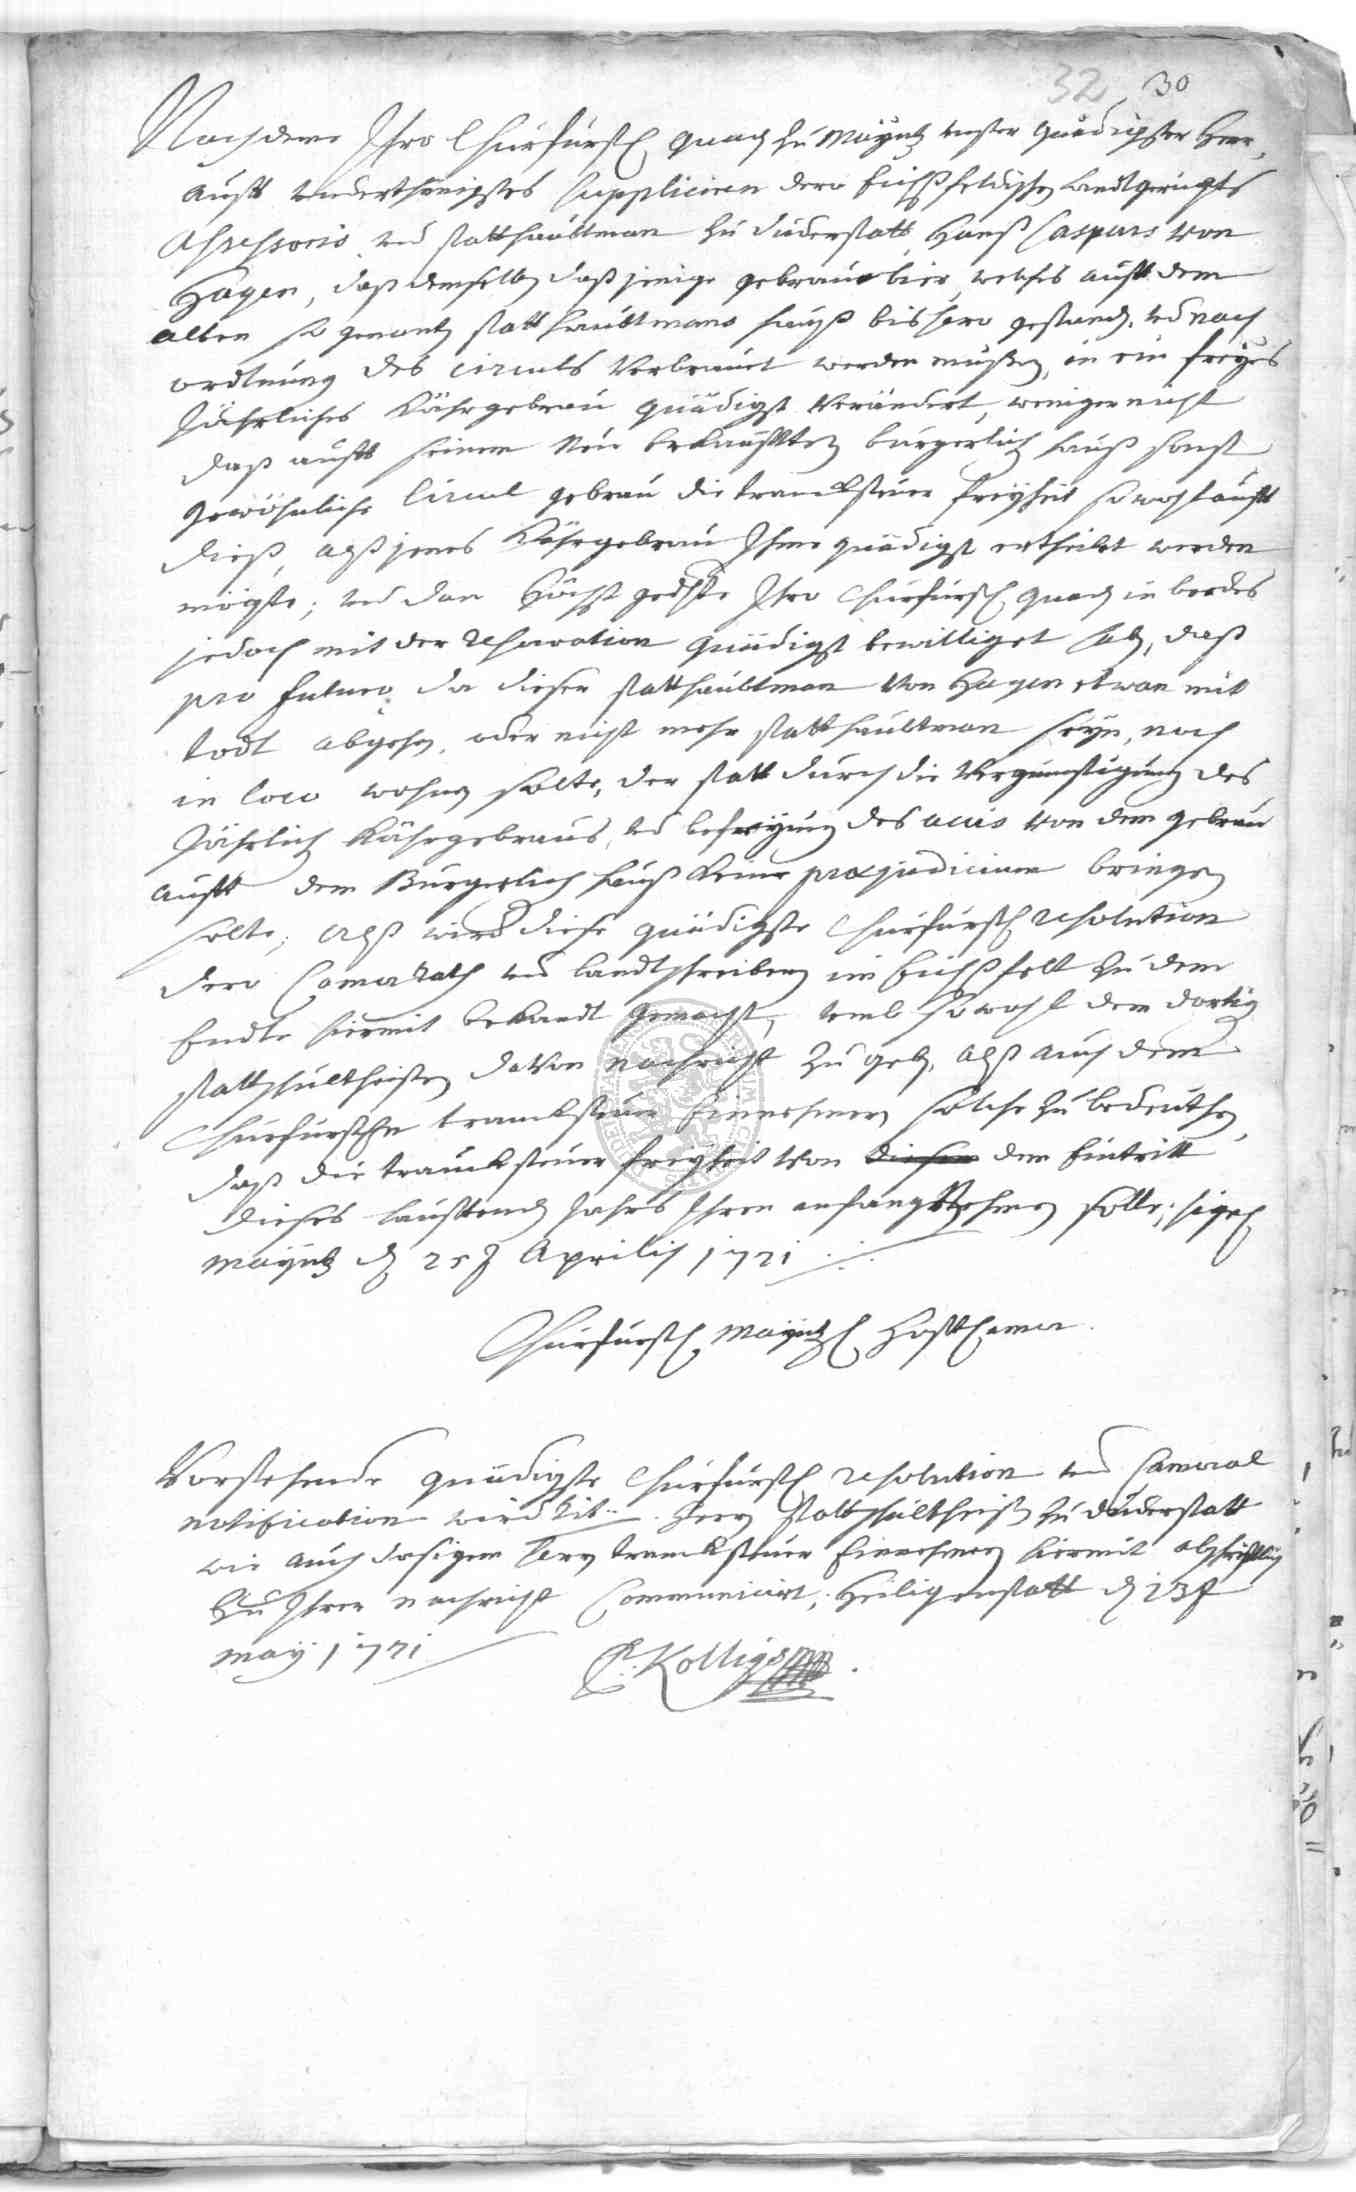 32 30
Nachdeme Ihro Churfürstl gnad zu Mayntz unser gnädigster Herr,
auff underthenigstes suppliciren dero Eichßfeldischen Landtgerichts
Assessoris und statthaubtman zu Duderstatt Hanß Caspars von
Hagen, daß demselben daß jenige gebraude bier, welches auff dem
alten so genantn statthaubtmans hauß bishero gestanden, und nach
ordtnung des circuls verbrauet werden müßen, in ein freyes
Jährliches Köhrgebrau gnädigst verändert, weniger nicht
daß auff seinem neu erkaufften bürgerlichen hauß sonst
gewöhnliche Circul gebrau die trancksteuer freyheit sowohl auff
dieß, alß jenes Köhrgebrau Ihme gnädigst ertheilet werden
mögte; und dan Höchst gedchte Ihro Churfürstl gnad in beedes
jedoch mit der reservation gnädigst bewilliget haben, daß
pro futuro da dieser statthaubtman von Hagen etwan mit
todt abgehen, oder nicht mehr statthaubtman seyn, noch
in loco wohnen solte, der statt durch die vergünstigung des
Jährlich Köhrgebraus, und befreyung des accis von dem gebrau
auff dem Bürgerlich hauß keine præjudicium bringen
solte; Alß wird diese gnädigste Churfürstl resolution
dero Camerrath und landtschreibern im Eichßfelt zu dem
Endte hiermit bekandt gemacht, umb sowohl dem dortig
stattschultheißen davon nachricht zu geben, alß auch dem
Churfürstln trancksteuer Einnehmern solches zu bedeuthen,
daß die trancksteuer freyheit von diesem dem Eintritt
dieses lauffenden Jahrs Ihren anfang nehmen solle; sigl
Mayntz d 25t Aprilis 1721
Churfürstl Mayntzl Hoffcamer.
Vorstehende gnädigste Churfürstl resolution und Cameral
notification wird tit. Herrn stattschultheiß zu duderstatt
wie auch dasigem Herrn trancksteuer Einnehmern hiermit abschrifftlich
zu Ihrer nachricht Communicirt; Heiligenstatt d 13t
may 1721
Kolligs